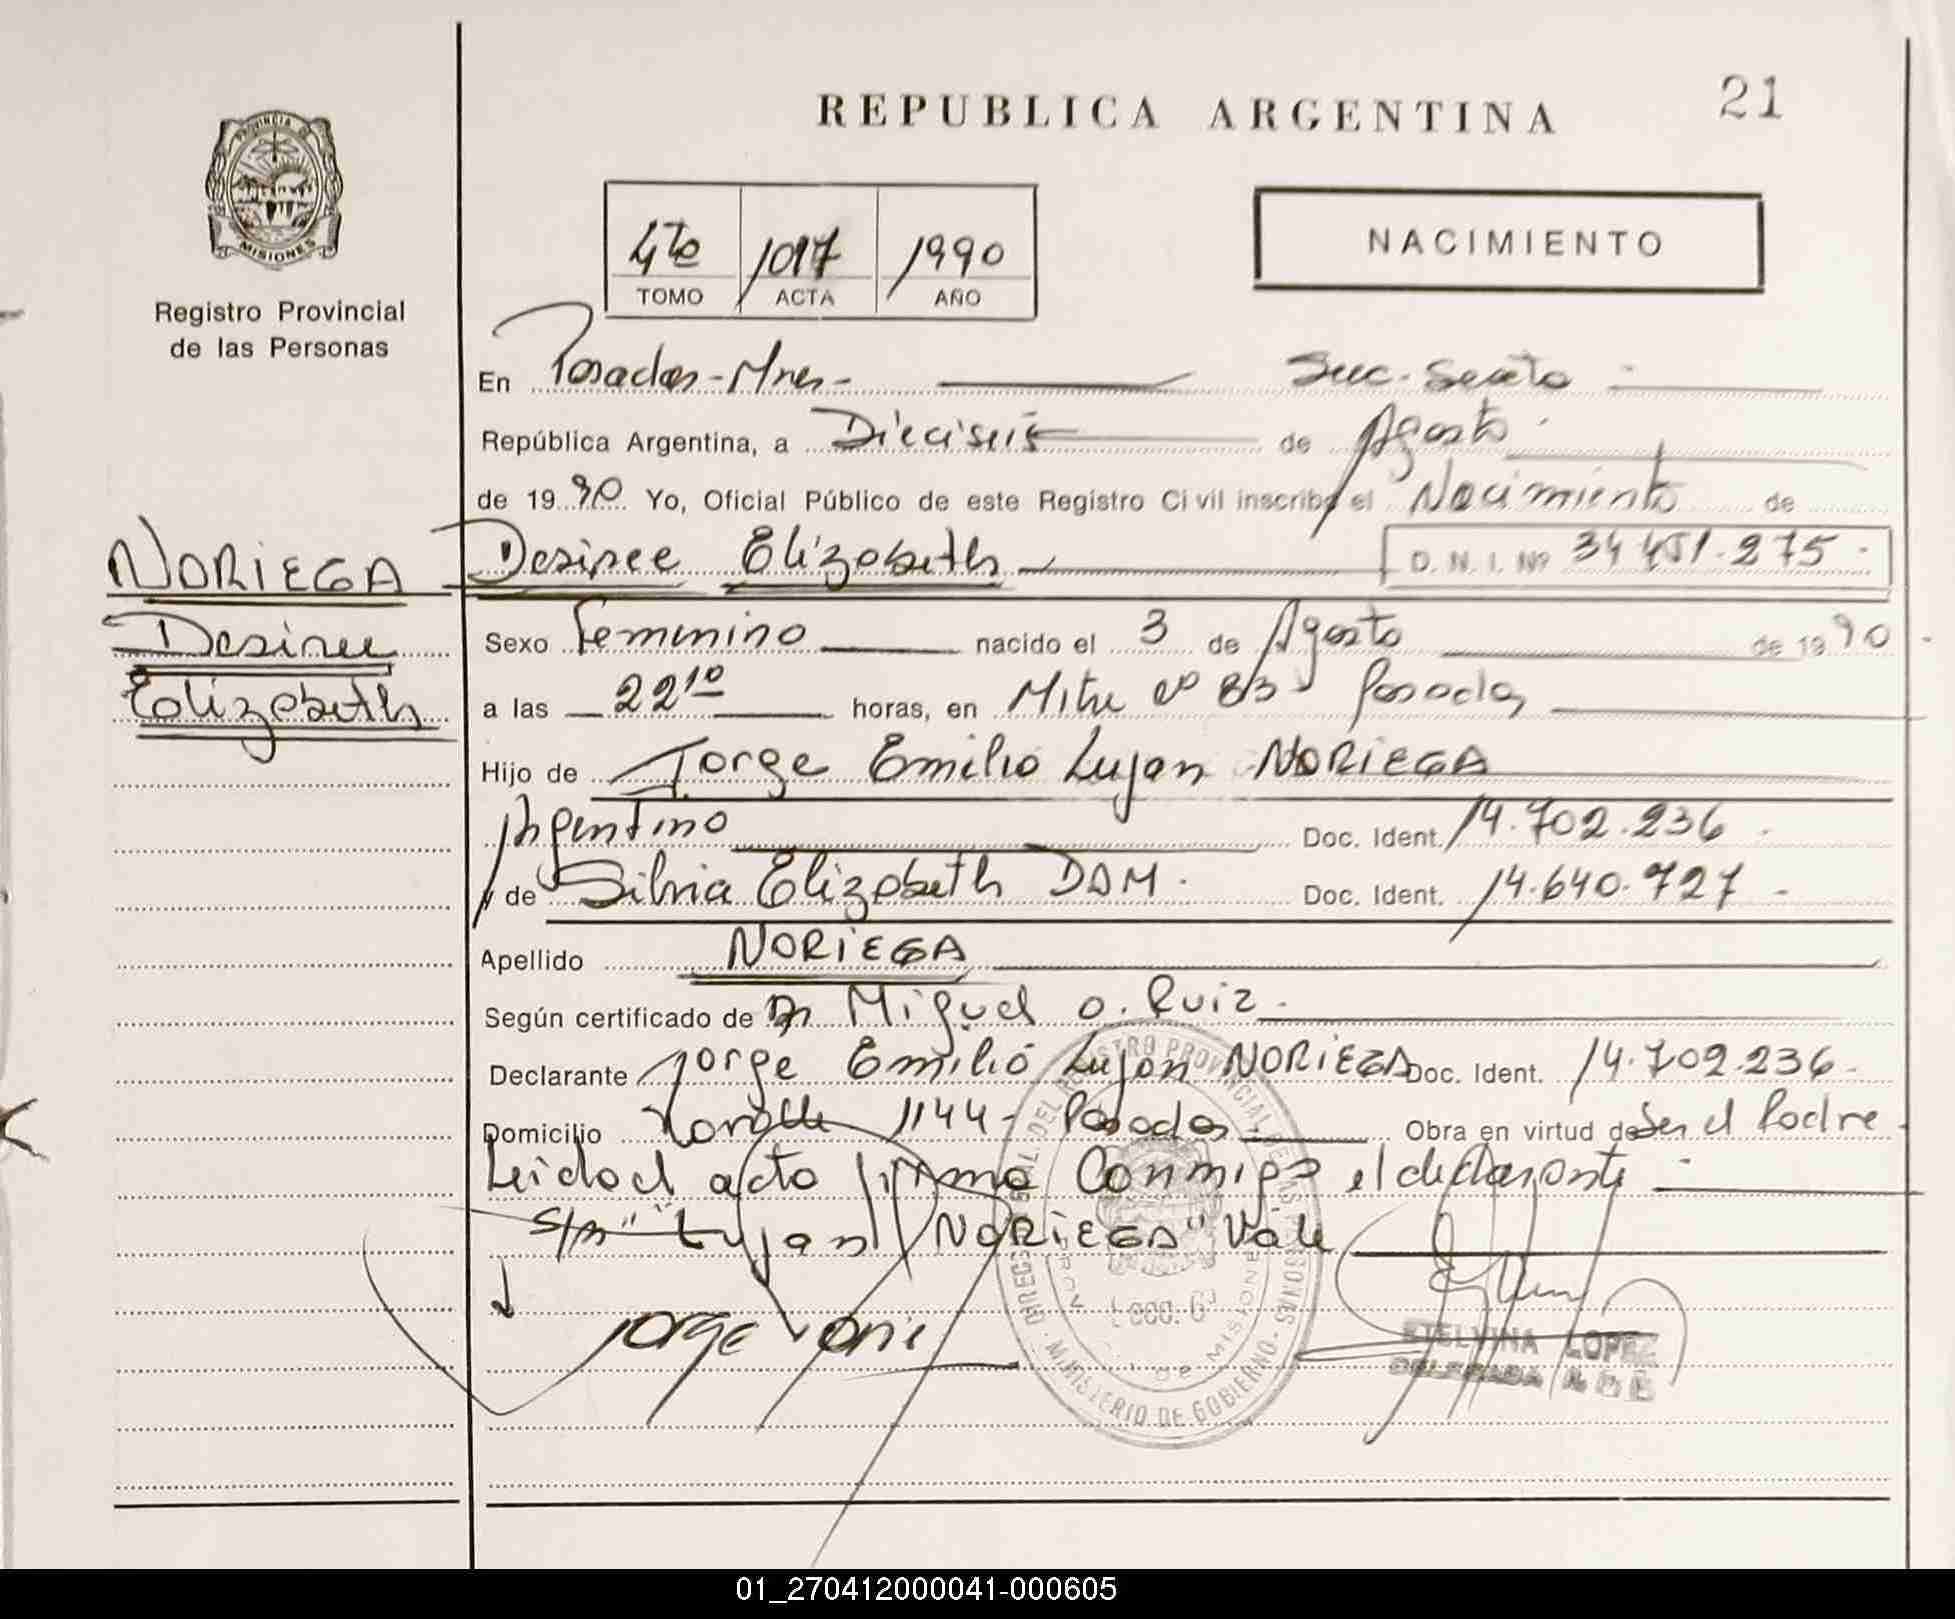 REPUBLICA ARGENTINA
21
PROVINCIA DE
MISIONES
Registro Provincial
de las Personas
4to 1017 1990
TOMO ACTA AÑO
NACIMIENTO
En Posadas-Mnes- Sec. Sexta
República Argentina, a Dieciseis de Agosto
de 1990 Yo, Oficial Público de este Registro Civil inscribo el Nacimiento de
NORIEGA
Desiree
Elizabeth
Desiree Elizabeth D. N. I. Nº 34 451.275
Sexo Femenino nacido el 3 de Agosto de 1990
a las 22 10 horas, en Mitre nº 83 Posadas
Hijo de Jorge Emilio Lujan NORIEGA
Argentino Doc. Ident. 14.702.236
y de Silvia Elizabeth DAM. Doc. Ident. 14.640.727
Apellido NORIEGA
Según certificado de Dr Miguel O. Ruiz.
Declarante Jorge Emilio Lujan NORIEGA Doc. Ident. 14.702.236
Domicilio 1144- Posadas Obra en virtud de Ser el Padre
Leido el acto firma Conmigo el declarante
s/r "Lujan NORIEGA" Vale
Jorge
ETELVINA LOPEZ
DELEGADA
MINISTERIO DE GOBIERNO
01_270412000041-000605